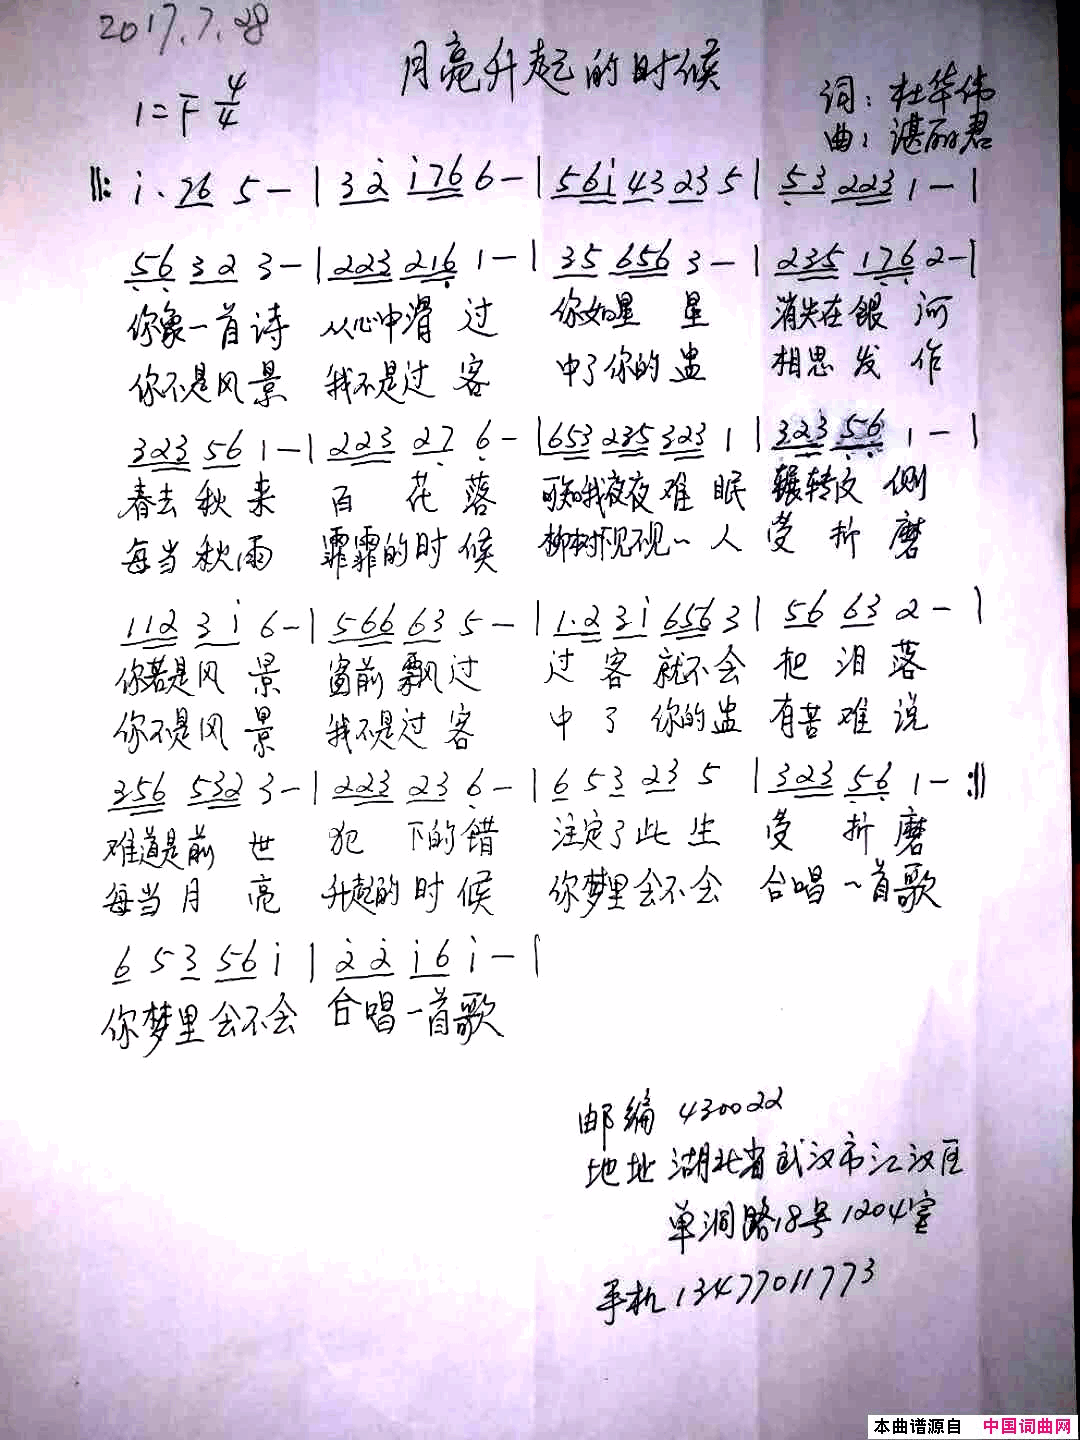 2017.7.28
月亮升起的时候
1=F 4/4
词：杜华伟
曲：湛丽君
‖: i·76 5－｜3 2̇ i76 6－｜56i 43 23 5｜53 223 1－｜
56 32 3－｜223 216 1－｜35 656 3－｜235 176 2－｜
你象一首诗 从心中滑过 你如星星 消失在银河
你不是风景 我不是过客 中了你的蛊 相思发作
323 56 1－｜223 27 6－｜653 235 323 1｜323 56 1－｜
春去秋来 百花落 可知我夜夜难眠 辗转反侧
每当秋雨 霏霏的时候 柳树不见不见一人受折磨
112 3i 6－｜566 63 5－｜1·2 3i 656 3｜56 63 2－｜
你若是风景 窗前飘过 过客就不会把泪落
你不是风景 我不是过客 中了你的蛊 有苦难说
356 532 3－｜223 23 6－｜6 5 3 23 5｜323 56 1－:‖
难道是前世 犯下的错 注定了此生受折磨
每当月亮 升起的时候 你梦里会不会 合唱一首歌
6 5 3 56 i｜2̇ 2̇ i6 i－｜
你梦里会不会 合唱一首歌
邮编 430022
地址 湖北省武汉市江汉区
单洞路18号1204室
手机 13477011773
本曲谱源自 中国词曲网